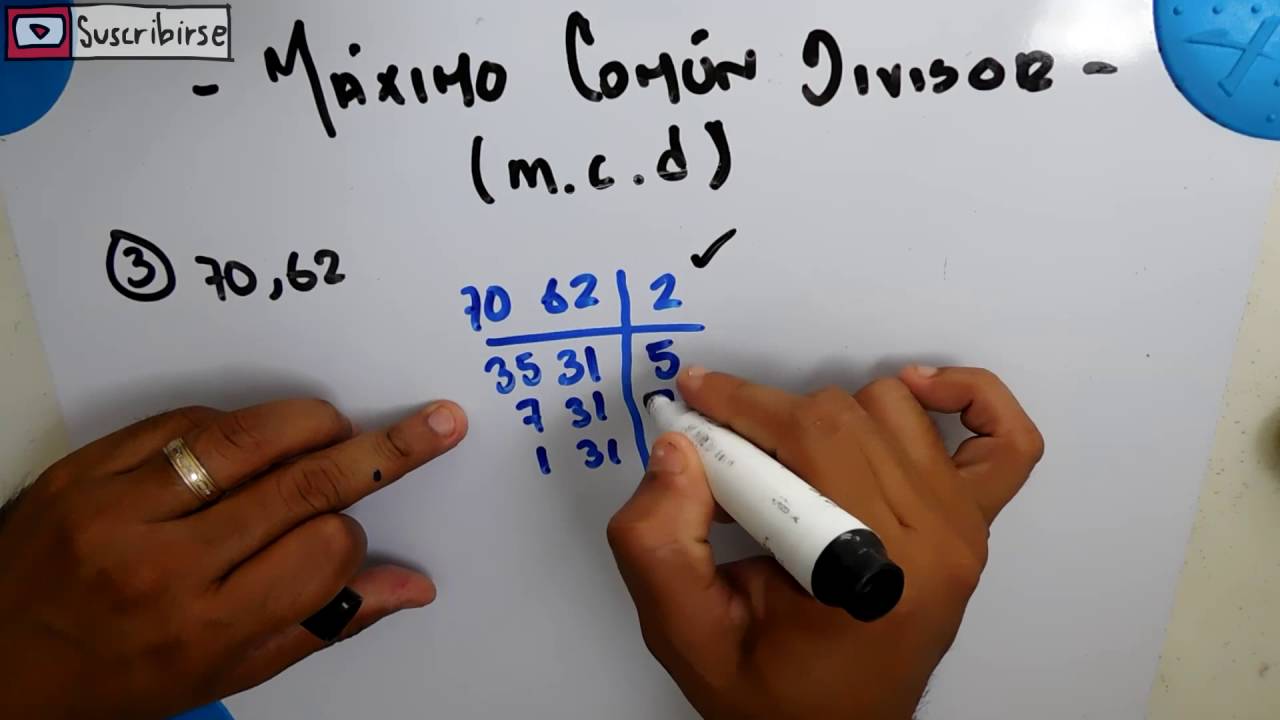 Suscribirse
- Máximo Común Divisor -
(m.c.d)
3 70, 62
70 62 2
35 31 5
7 31
1 31